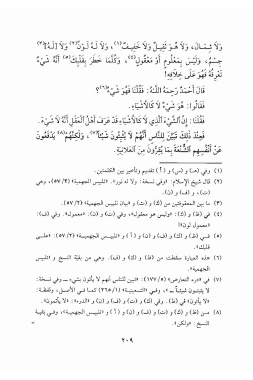 وَلَا شِمَالٌ، وَلَا هُوَ ثَقِيلٌ وَلَا خَفِيفٌ(١)، وَلَا لَهُ لَوْنٌ(٢) وَلَا لَهُ(٣)
جِسْمٌ، وَلَيْسَ بِمَعْلُومٍ أَوْ مَعْقُولٍ(٤)، وَكُلَّمَا خَطَرَ بِقَلْبِكَ(٥) أَنَّهُ شَيْءٌ
تَعْرِفُهُ فَهُوَ عَلَى خِلَافِهِ!
قَالَ أَحْمَدُ رَحِمَهُ اللَّهُ: فَقُلْنَا فَهُوَ شَيْءٌ(٦)؟
فَقَالُوا: هُوَ شَيْءٌ لَا كَالْأَشْيَاءِ.
فَقُلْنَا: إِنَّ الشَّيْءَ الَّذِي لَا كَالْأَشْيَاءِ قَدْ عَرَفَ أَهْلُ الْعَقْلِ أَنَّهُ لَا شَيْءَ.
فَعِنْدَ ذَلِكَ تَبَيَّنَ لِلنَّاسِ أَنَّهُمْ لَا يُثْبِتُونَ شَيْئًا(٧)، وَلَكِنَّهُمْ(٨) يَدْفَعُونَ
عَنْ أَنْفُسِهِمُ الشُّنْعَةَ بِمَا يُقِرُّونَ مِنَ الْعَلَانِيَةِ.
(١) وفي (هـ) و(س) و(أ) تقديم وتأخير بين الكلمتين.
(٢) قال شيخ الإسلام: «وفي نسخة: ولا له نور». «تلبيس الجهمية» (٥٧/٢)، وهي
(ت)، و(ف) و(ن).
(٣) ما بين المعقوفتين من (ظ) و(ك) و(ت) و«بيان تلبيس الجهمية» (٥٧/٢).
(٤) في (ظ) و(ك): «وليس هو معقول»، وفي (ت) و(ن): «معمول»، وفي (ف):
«معمول لون»!
(٥) في (ظ) و(ك) و(ف) و(ن) و(أ) و«تلبيس الجهمية» (٥٧/٢): «على
قلبك».
(٦) هذه العبارة سقطت من (ظ) و(ك) و(ف)، وهي من بقيَّة النسخ و«تلبيس
الجهمية».
(٧) في «درء التعارض» (١٧٧/٥): «تبين للناس أنهم لا يأتون بشيء» ــ وفي نسخة:
لا يثبتون شيئًا ــ»، وفي «التسعينية» (٢٦٥/١) كما في الأصل، ولفظة:
«لا يأتون» في (ظ). وفي (ك) و(ت) و(ف) و(ن) و«الدرء»: «لا يأتمون».
(٨) من (ظ) و(ك) و(ت) و(ف) و(ن) و(أ) و«تلبيس الجهمية»، وفي بقية
النسخ: «ولكن».
٢٠٩